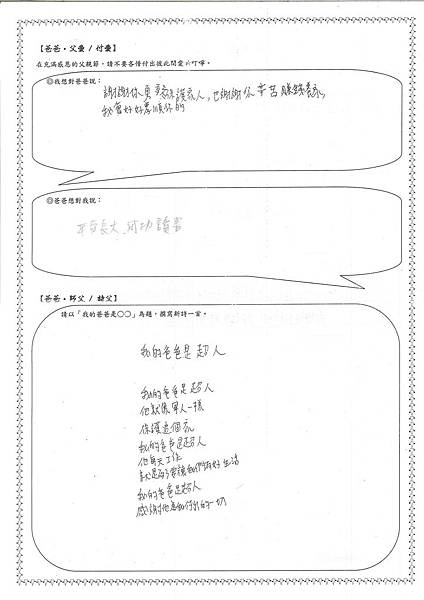 【爸爸・父愛 / 付愛】
在充滿感恩的父親節，請不要吝惜付出彼此間愛の叮嚀。
◎我想對爸爸說：
謝謝你勇敢保護家人，也謝謝你辛苦賺錢養家，
我會好好孝順你的
◎爸爸想對我說：
平安長大、成功讀書
【爸爸・師父 / 詩父】
請以「我的爸爸是○○」為題，撰寫新詩一首。
我的爸爸是超人
我的爸爸是超人
他就像軍人一樣
保護這個家
我的爸爸是超人
他每天工作
就是為了要讓我們有好生活
我的爸爸是超人
感謝他為我付出的一切